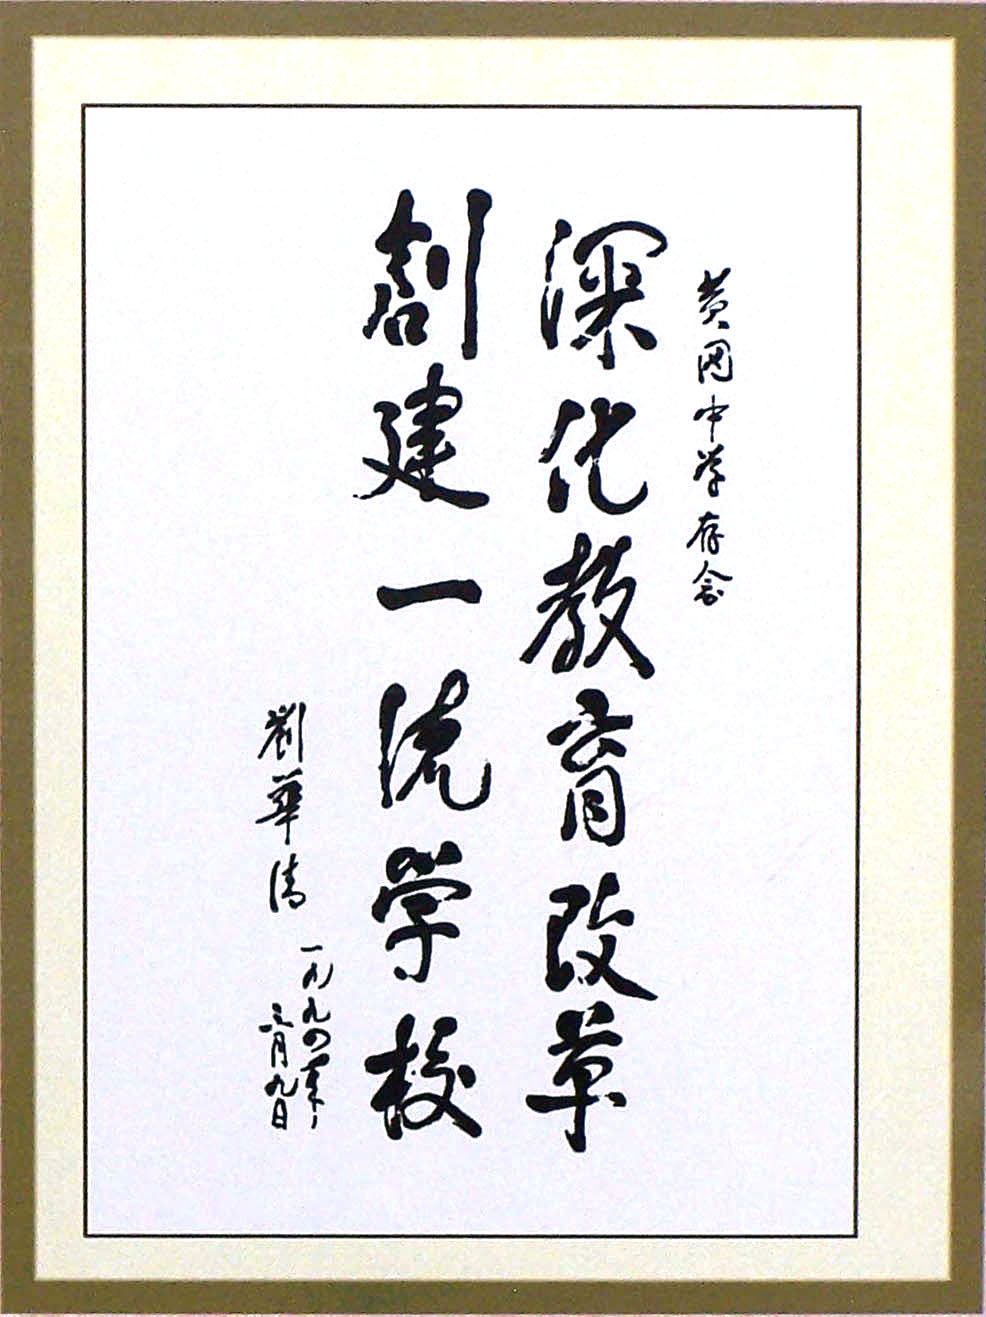 黄冈中学存念
深化教育改革
創建一流学校
劉華清
一九九四年
三月九日